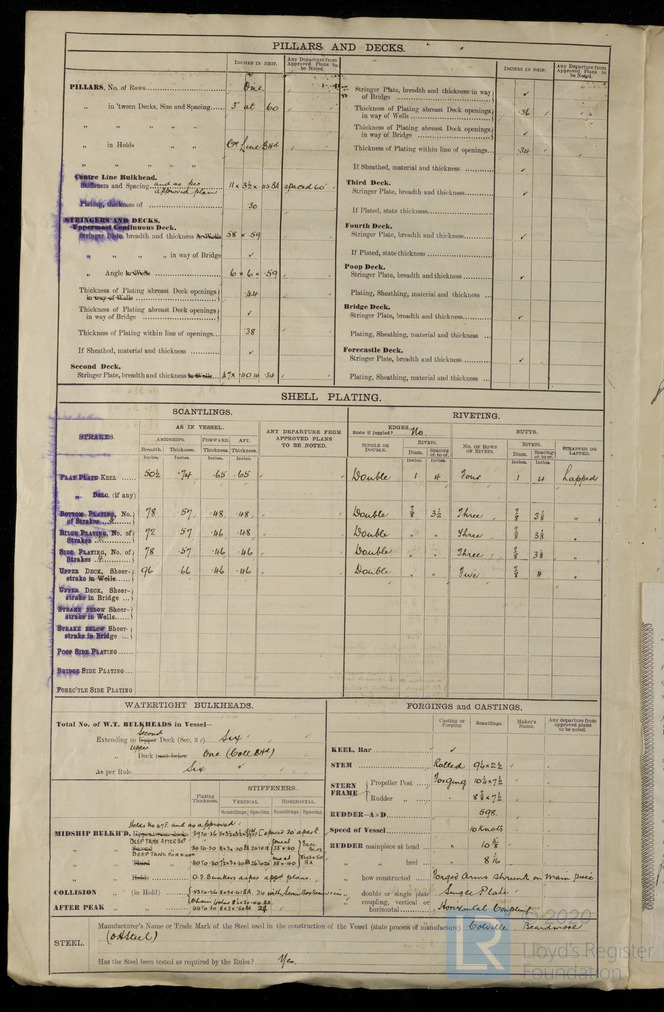 PILLARS AND DECKS.
INCHES IN SHIP. Any Departure from Approved Plans to be Noted.
PILLARS, No. of Rows One
„ in 'tween Decks, Size and Spacing 3" at 60
„ „ „ „
„ in Holds „ „
„ „ „ „
Centre Line Bulkhead.
Stiffeners and Spacing and as per approved plan 11 x 3½ x spaced 60
Plating, thickness of 30
STRINGERS AND DECKS.
Uppermost Continuous Deck.
Stringer Plate, breadth and thickness in Wells 58 x .59
„ „ „ „ in way of Bridge ✓
„ Angle in Wells 6 x 6 x .59
Thickness of Plating abreast Deck openings in way of Wells .44
Thickness of Plating abreast Deck openings in way of Bridge ✓
Thickness of Plating within line of openings .38
If Sheathed, material and thickness ✓
Second Deck.
Stringer Plate, breadth and thickness in Wells
INCHES IN SHIP. Any Departure from Approved Plans to be Noted.
Stringer Plate, breadth and thickness in way of Bridge ✓
Thickness of Plating abreast Deck openings in way of Wells .36
Thickness of Plating abreast Deck openings in way of Bridge ✓
Thickness of Plating within line of openings .34
If Sheathed, material and thickness ✓
Third Deck.
Stringer Plate, breadth and thickness ✓
If Plated, state thickness
Fourth Deck.
Stringer Plate, breadth and thickness ✓
If Plated, state thickness
Poop Deck.
Stringer Plate, breadth and thickness ✓
Plating, Sheathing, material and thickness
Bridge Deck.
Stringer Plate, breadth and thickness ✓
Plating, Sheathing, material and thickness
Forecastle Deck.
Stringer Plate, breadth and thickness ✓
Plating, Sheathing, material and thickness
SHELL PLATING.
SCANTLINGS. RIVETING.
STRAKES. AS IN VESSEL. ANY DEPARTURE FROM APPROVED PLANS TO BE NOTED. EDGES. State if joggled? No BUTTS.
AMIDSHIPS. FORWARD. AFT. SINGLE OR DOUBLE. RIVETS. NO. OF ROWS OF RIVETS. RIVETS. STRAPPED OR LAPPED.
Breadth. Thickness. Thickness. Thickness. Diam. Spacing cr. to cr. Diam. Spacing cr. to cr.
Inches. Inches. Inches. Inches. Inches. Inches. Inches. Inches.
FLAT PLATE KEEL 50½ .74 .65 .65 Double 1 4 Four 1 4 Lapped
„ DBLG. (if any)
BOTTOM PLATING, No. of Strakes 78 .57 .48 .48 Double ⅞ 3½ Three ⅞ „
BILGE PLATING, No. of Strakes 72 .57 .46 .48 Double „ „ Three ⅞ „
SIDE PLATING, No. of Strakes 78 .57 .46 .46 Double „ „ Three ⅞ „
UPPER DECK, Sheer-strake in Wells 96 .66 .46 .46 Double „ „ Five ⅞ 4 „
UPPER DECK, Sheer-strake in Bridge
STRAKE BELOW Sheer-strake in Wells
STRAKE BELOW Sheer-strake in Bridge
POOP SIDE PLATING
BRIDGE SIDE PLATING
FOREC'TLE SIDE PLATING
WATERTIGHT BULKHEADS.
Total No. of W.T. BULKHEADS in Vessel—
Second
Extending to Upper Deck (Sec. 3 c) Six
upper
„ Deck next below One (Coll BHd)
As per Rule Six
Plating Thickness. STIFFENERS.
VERTICAL. HORIZONTAL.
Scantlings. Spacing. Scantlings. Spacing.
MIDSHIP BULKH'D,
DEEP TANK AFTER BHD
„ „ Second
„ „ Third
„ „ Holds
COLLISION „ (in Hold)
AFTER PEAK „ „
FORGINGS and CASTINGS.
Casting or Forging. Scantlings. Maker's Name. Any departure from approved plans to be noted.
KEEL, Bar ✓
STEM Rolled 9¼ x 2½
STERN FRAME Propeller Post Forging 10½ x 7½
Rudder „ 8⅝ x 7½
RUDDER—A×D 598
Speed of Vessel 10 knots
RUDDER mainpiece at head
„ „ heel
„ how constructed Forged Arms Shrunk on Main piece
„ double or single plate Single Plate
„ coupling, vertical or horizontal Horizontal Coupling
STEEL. Manufacturer's Name or Trade Mark of the Steel used in the construction of the Vessel (state process of manufacture) Colville Beardmore
(OH Steel)
Has the Steel been tested as required by the Rules? Yes
© 2020
LR Lloyd's Register Foundation